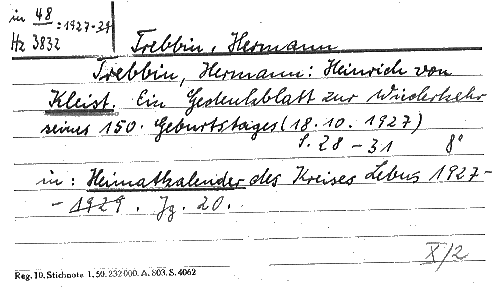 in 48 : 1927-29
Hz 3832
Trebbin, Hermann
Trebbin, Hermann: Heinrich von
Kleist. Ein Gedenkblatt zur Wiederkehr
seines 150. Geburtstages (18.10.1927)
S. 28-31 8°
in: Heimatkalender des Kreises Lebus 1927-
- 1929. Jg. 20.
X/2
Reg. 10. Stichnote 1. 50. 232 000. A. 803. S. 4062